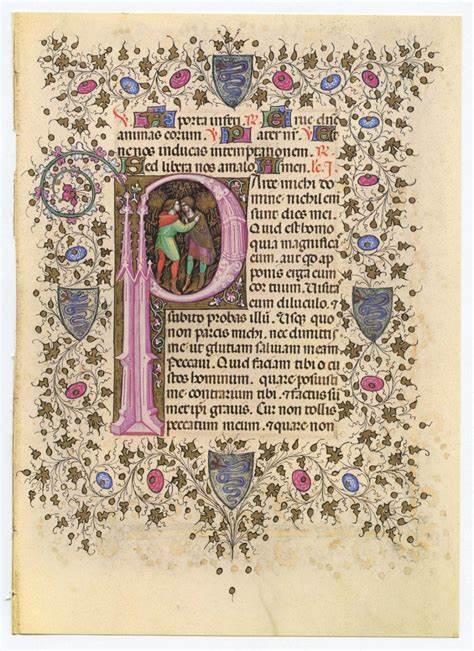 V A porta inferi. R Erue dñe
animas eorum. V Pater nr̄. V Et
ne nos inducas intemptationem. R
Sed libera nos amalo Amen. lc. I
Parce michi do
mine nichil eni
sunt dies mei.
Quid est homo
quia magnificas
eum. aut qd ap
ponis erga eum
cor tuum. Visitas
eum diluculo. &
subito probas illū. Usq; quo
non parcis michi. nec dimittis
me ut glutiam saliuam meam
Peccaui. Quid faciam tibi o cu
stos hominum. quare posuisti
me contrarium tibi. & factus sū
mei ipi grauis. Cur non tollis
peccatum meum. & quare non